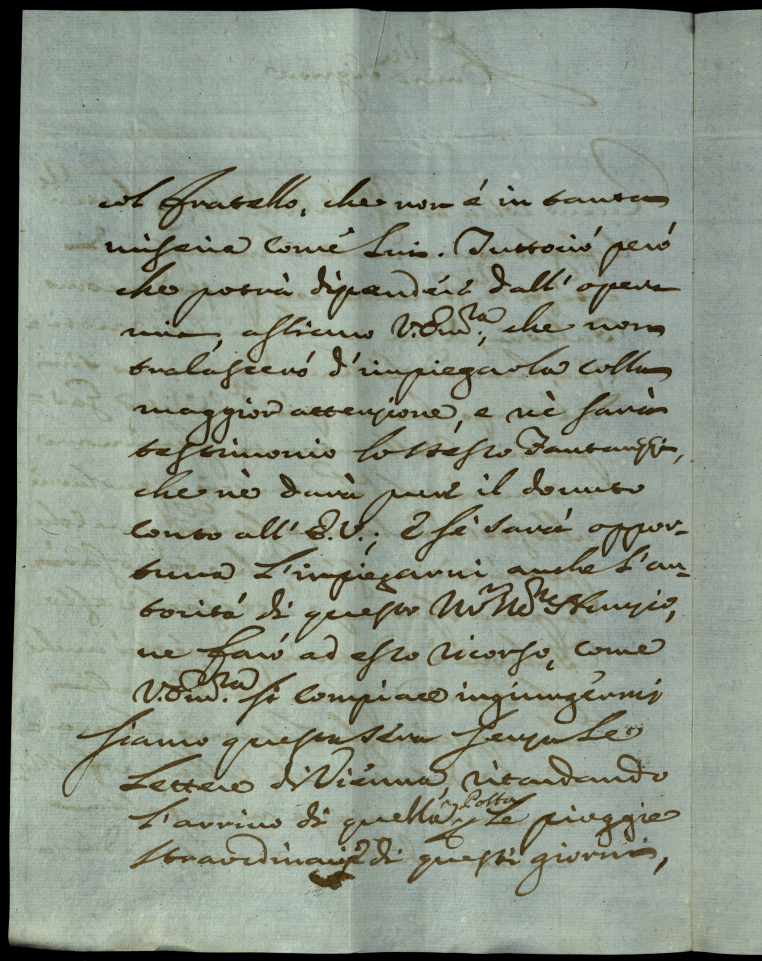 col fratello, che non é in tanta
miseria come Lui. Tuttociò però
che potrà dipendere dall' opera
mia, assicuro V. Em.ᶻᵃ, che non
tralascerò d' impiegarla colla
maggior attenzione, e nè sarà
testimonio lo stesso
che nè darà pure il dovuto
conto all' E. V.; E se sarà oppor-
tuno l' impiegarvi anche l' au-
torità di questo Nunzio,
ne farò ad esso ricorso, come
V. Em.ᶻᵃ si compiace ingiungermi
Siamo questa sera senza Le
Lettere di Vienna ritardando
l' arrivo di quella Posta Le pioggie
straordinarie di questi giorni,